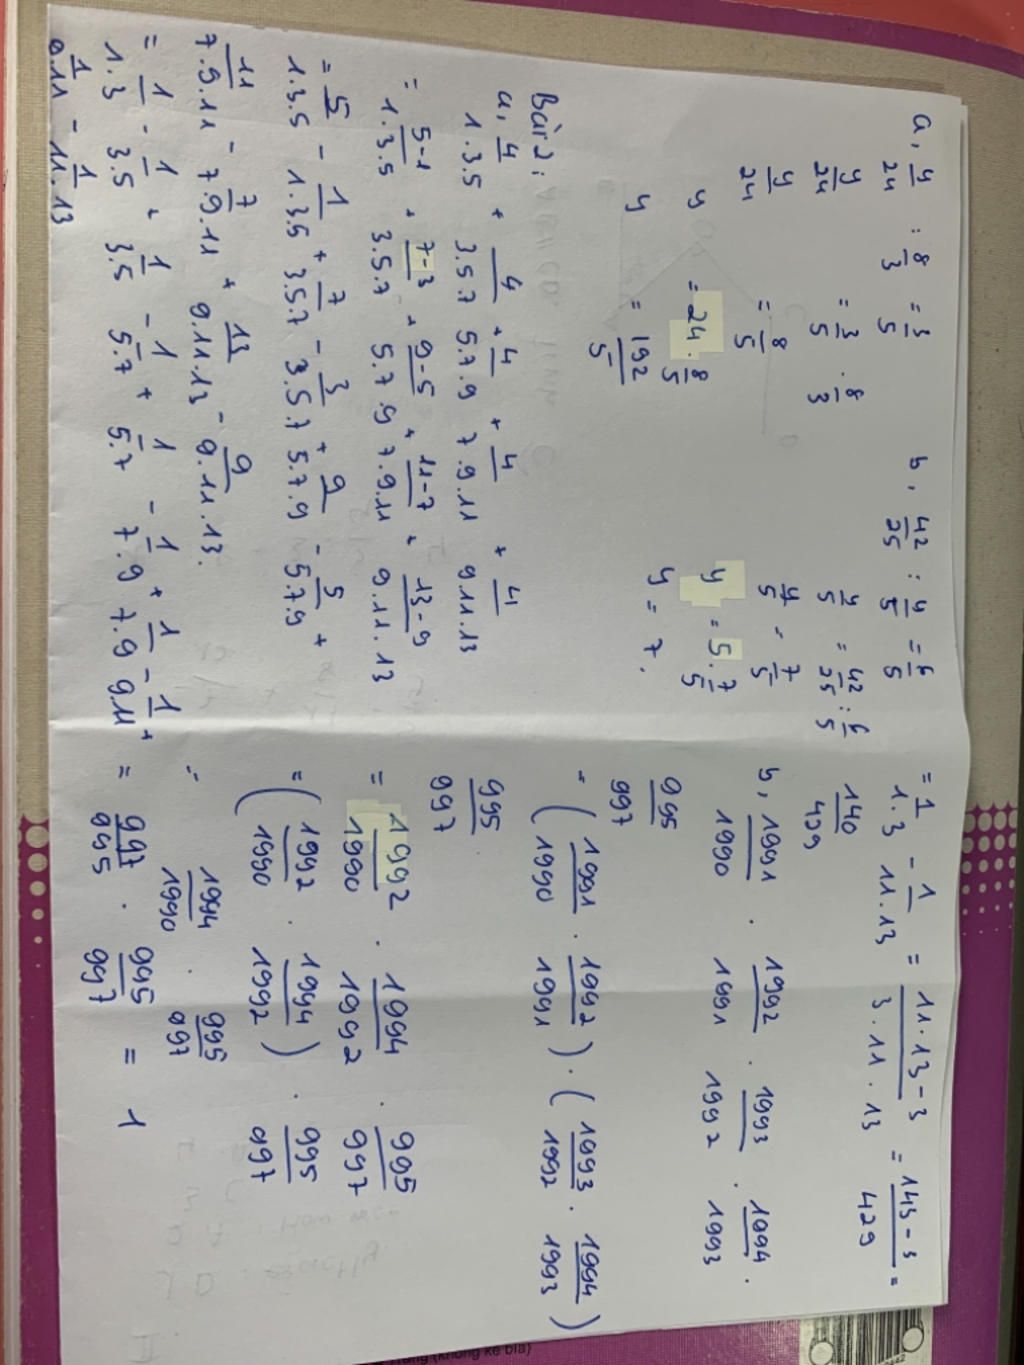 a, y/24 : 8/3 = 3/5
y/24 = 3/5 . 8/3
y/24 = 8/5
y = 24 . 8/5
y = 192/5
b, 42/25 : y/5 = 6/5
y/5 = 42/25 : 6/5
y/5 = 7/5
y = 5 . 7/5
y = 7.
Bài 2:
a, 4/1.3.5 + 4/3.5.7 + 4/5.7.9 + 4/7.9.11 + 4/9.11.13
= 5-1/1.3.5 + 7-3/3.5.7 + 9-5/5.7.9 + 11-7/7.9.11 + 13-9/9.11.13
= 5/1.3.5 - 1/1.3.5 + 7/3.5.7 - 3/3.5.7 + 9/5.7.9 - 5/5.7.9 +
11/7.9.11 - 7/7.9.11 + 13/9.11.13 - 9/9.11.13.
= 1/1.3 - 1/3.5 + 1/3.5 - 1/5.7 + 1/5.7 - 1/7.9 + 1/7.9 - 1/9.11 +
1/9.11 - 1/11.13
= 1/1.3 - 1/11.13 = 11.13-3/3.11.13 = 143-3/429 =
140/429
b, 1991/1990 . 1992/1991 . 1993/1992 . 1994/1993 .
995/997
= (1991/1990 . 1992/1991) . (1993/1992 . 1994/1993)
995/997
= 1992/1990 . 1994/1992 . 995/997
= (1992/1990 . 1994/1992) . 995/997
= 1994/1990 . 995/997
= 997/995 . 995/997 = 1
(không kể bìa)